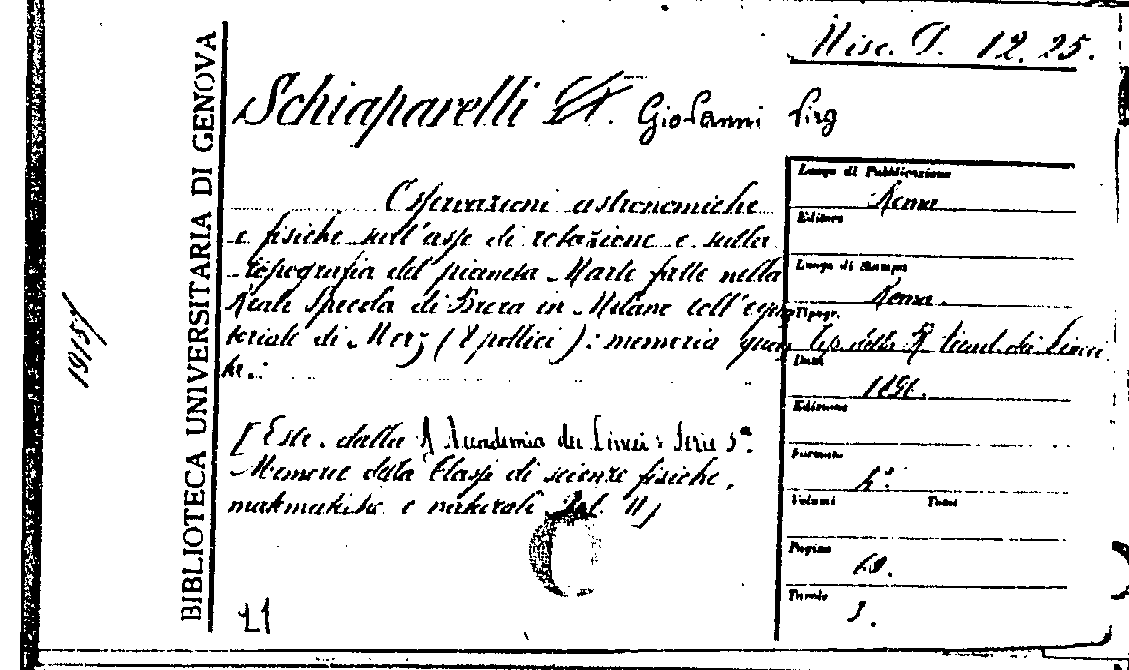 BIBLIOTECA UNIVERSITARIA DI GENOVA
Misc. D. 12. 25.
Schiaparelli Giovanni Virg
Osservazioni astronomiche
e fisiche sull'asse di rotazione e sulla
topografia del pianeta Marte fatte nella
Reale Specola di Brera in Milano coll'equa
toriale di Merz (8 pollici): memoria
[Estr. dalla R Accademia dei Lincei: Serie 5ª
Memorie della Classe di scienze fisiche,
matematiche e naturali Vol. II]
21
Luogo di Pubblicazione
Roma
Editore
Luogo di Stampa
Roma.
Tipogr.
Tip. della R. Accad. dei Lincei
Data
Edizione
Formato
4º
Volumi Tomi
Pagine
Tavole
3.